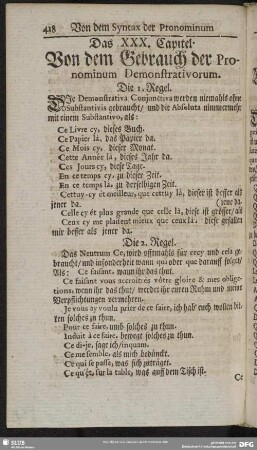 428 Von dem Syntax der Pronominum
Das XXX. Capitel.
Von dem Gebrauch der Pro-
nominum Demonstrativorum.
Die 1. Regel.
Die Demonstrativa Conjunctiva werden niemahls ohne
Substantivis gebraucht/ und die Absoluta nimmermehr
mit einem Substantivo, als:
Ce Livre cy, dieses Buch.
Ce Papier là, das Papier da.
Ce Mois cy, dieser Monat.
Cette Année là, dieses Jahr da.
Ces Jours cy, diese Tage.
En ce temps cy, zu dieser Zeit.
En ce temps là, zu derselbigen Zeit.
Cettuy-cy ét meilleur, que cettuy là, dieser ist besser als
jener da. (jene da.
Celle cy ét plus grande que celle là, diese ist grösser/ als
Ceux cy me plaisent mieux que ceux là, diese gefallen
mir besser als jener da.
Die 2. Regel.
Das Neutrum Ce, wird offtmahls für cecy und cela ge-
braucht/ und insonderheit wann qui oder que darauff folget/
Als: Ce faisant, wann ihr das thut.
Ce faisant vous accroitrés vôtre gloire & mes oblige-
tions, wenn ihr das thut/ werdet ihr euren Ruhm und meine
Verpflichtungen vermehren.
Je vous ay voulu prier de ce faire, ich hab' euch wollen bit-
ten solches zu thun.
Pour ce faire, umb solches zu thun.
Induit à ce faire, bewogt solches zu thun.
Ce di-je, sage ich/inquam.
Ce me semble, als mich bedünckt.
Ce qui se passe, was sich zuträget.
Ce qu'ét, sur la table, was auff dem Tisch ist.
Ce
SLUB
DFG